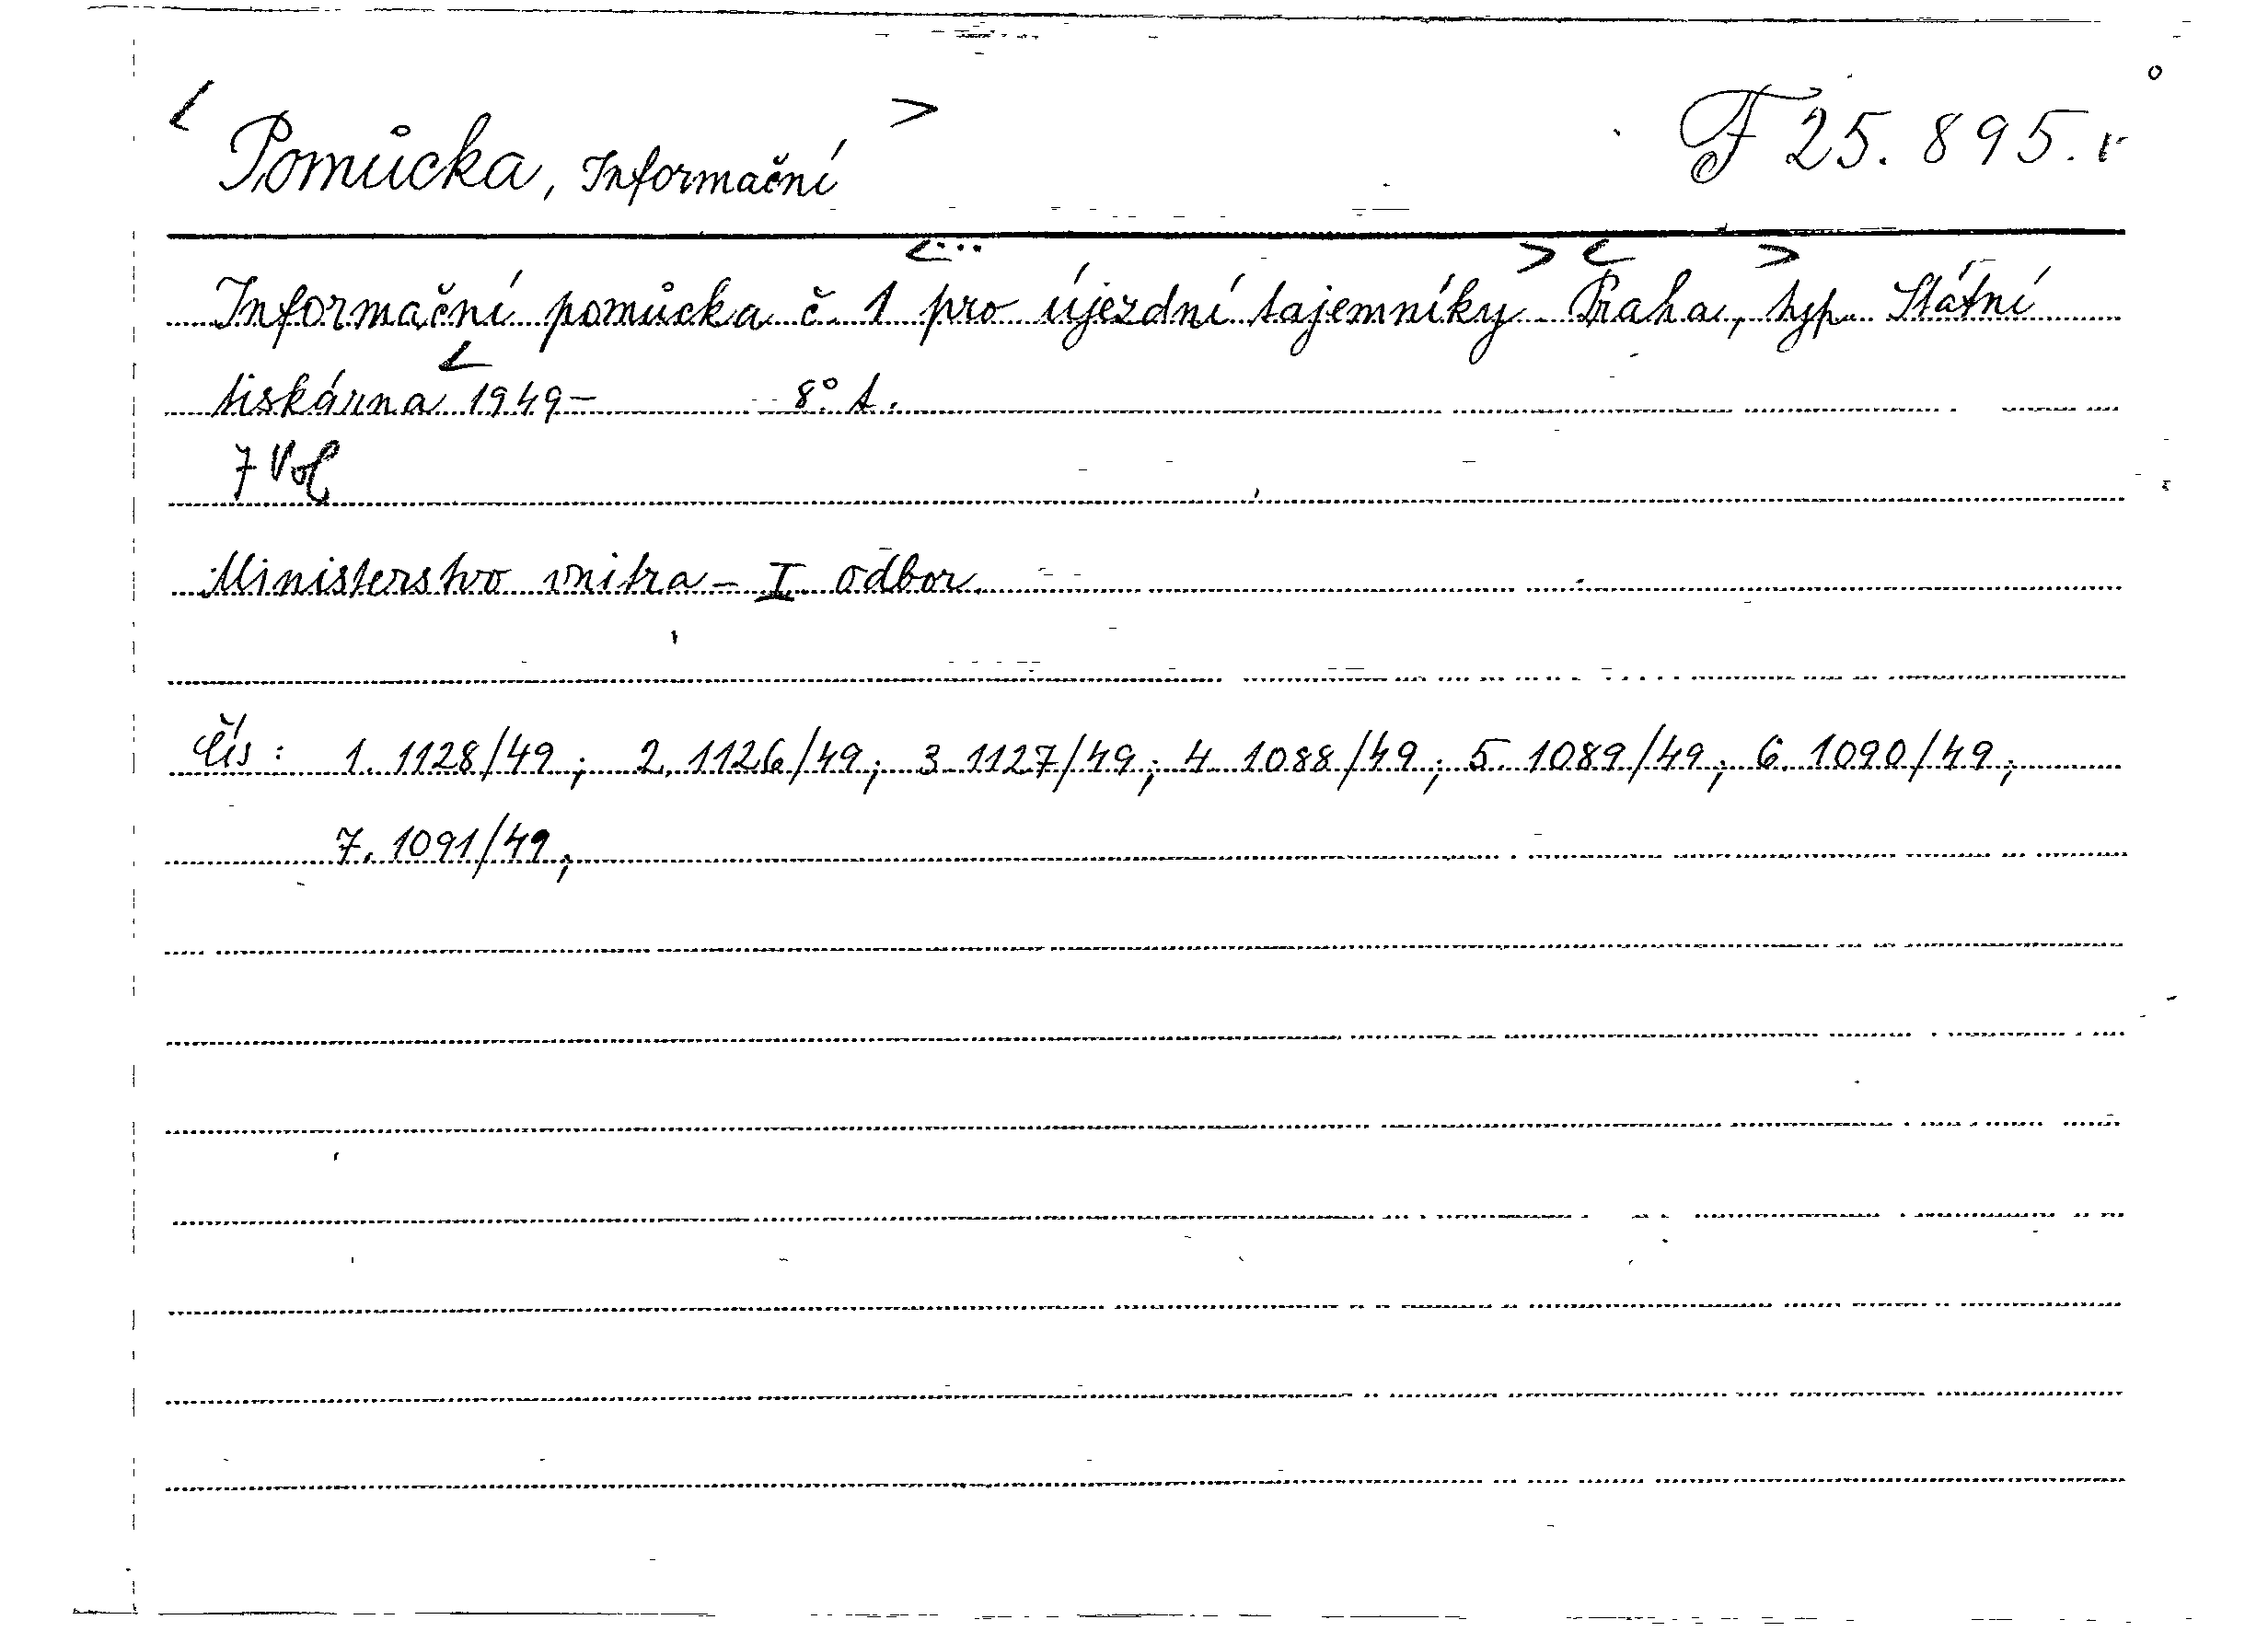 Pomůcka, Informační
F 25.895.
Informační pomůcka č. 1 pro újezdní tajemníky. Praha, typ. Státní
tiskárna 1949- 8° t.
7 Vol
Ministerstvo vnitra - I. odbor.
Čís: 1. 1128/49; 2. 1126/49; 3. 1127/49; 4. 1088/49; 5. 1089/49; 6. 1090/49;
7. 1091/49;